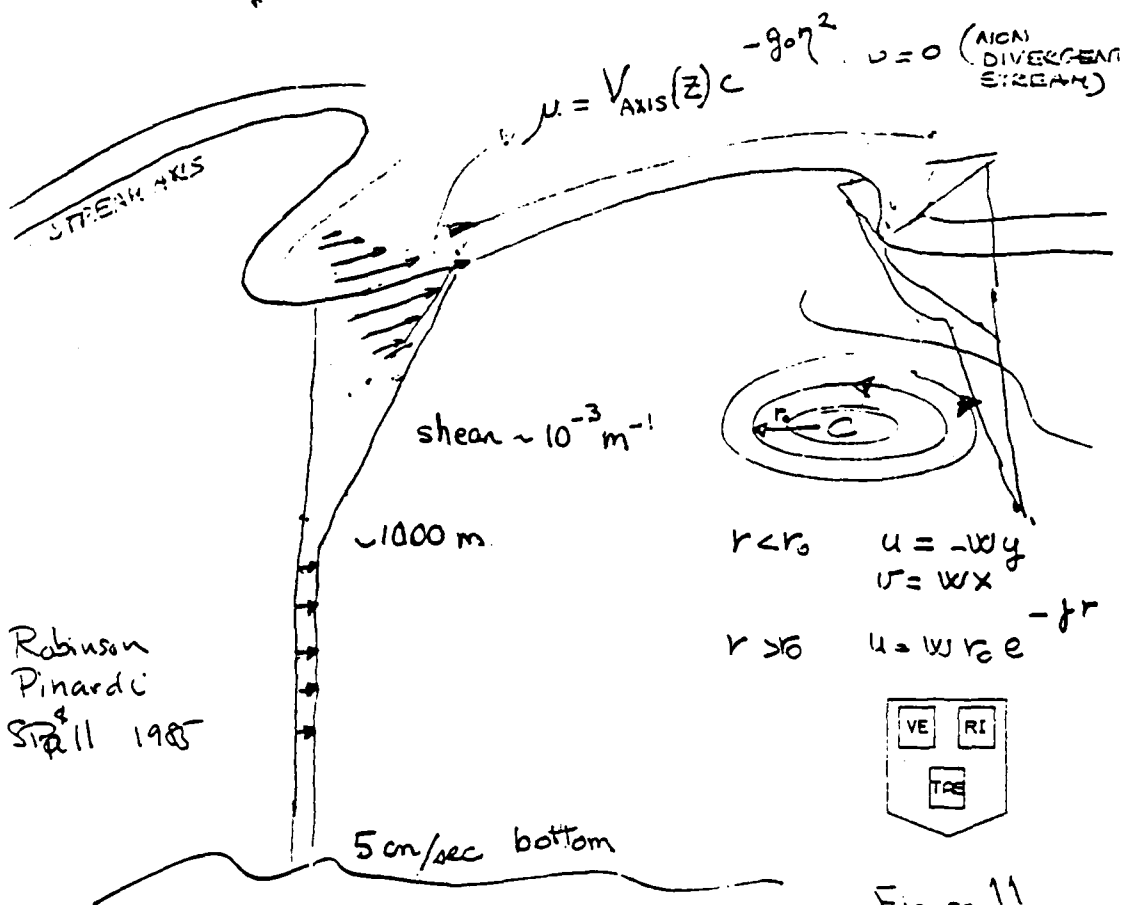 μ = V_AXIS(Z) e^{-g₀η²} υ = 0 (NON
DIVERGENT
STREAM)
STREAM AXIS
shear ~ 10⁻³ m⁻¹
~1000 m.
r₀
C
r < r₀ u = -wy
v = wx
r > r₀ u = w r₀ e^{-γr}
Robinson
Pinardi
& Spall 1985
VE RI
TAS
5 cm/sec bottom
Figure 11